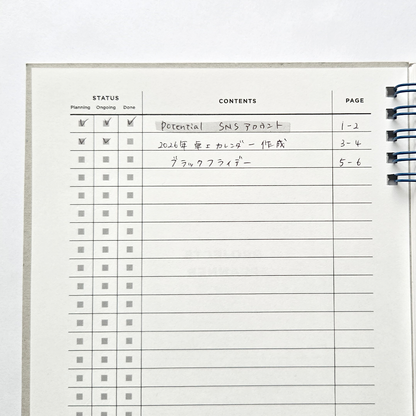 STATUS
Planning Ongoing Done CONTENTS PAGE
Potential SNS アカウント 1-2
2026年 卓上カレンダー 作成 3-4
ブラックフライデー 5-6